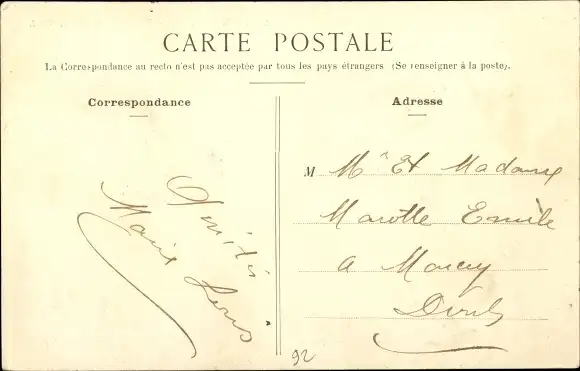 CARTE POSTALE
La Correspondance au recto n'est pas acceptée par tous les pays étrangers (Se renseigner à la poste).
Correspondance
Amitiés
Marie Louis
Adresse
M Mr Et Madame
Marotte Emile
a Morcey
92